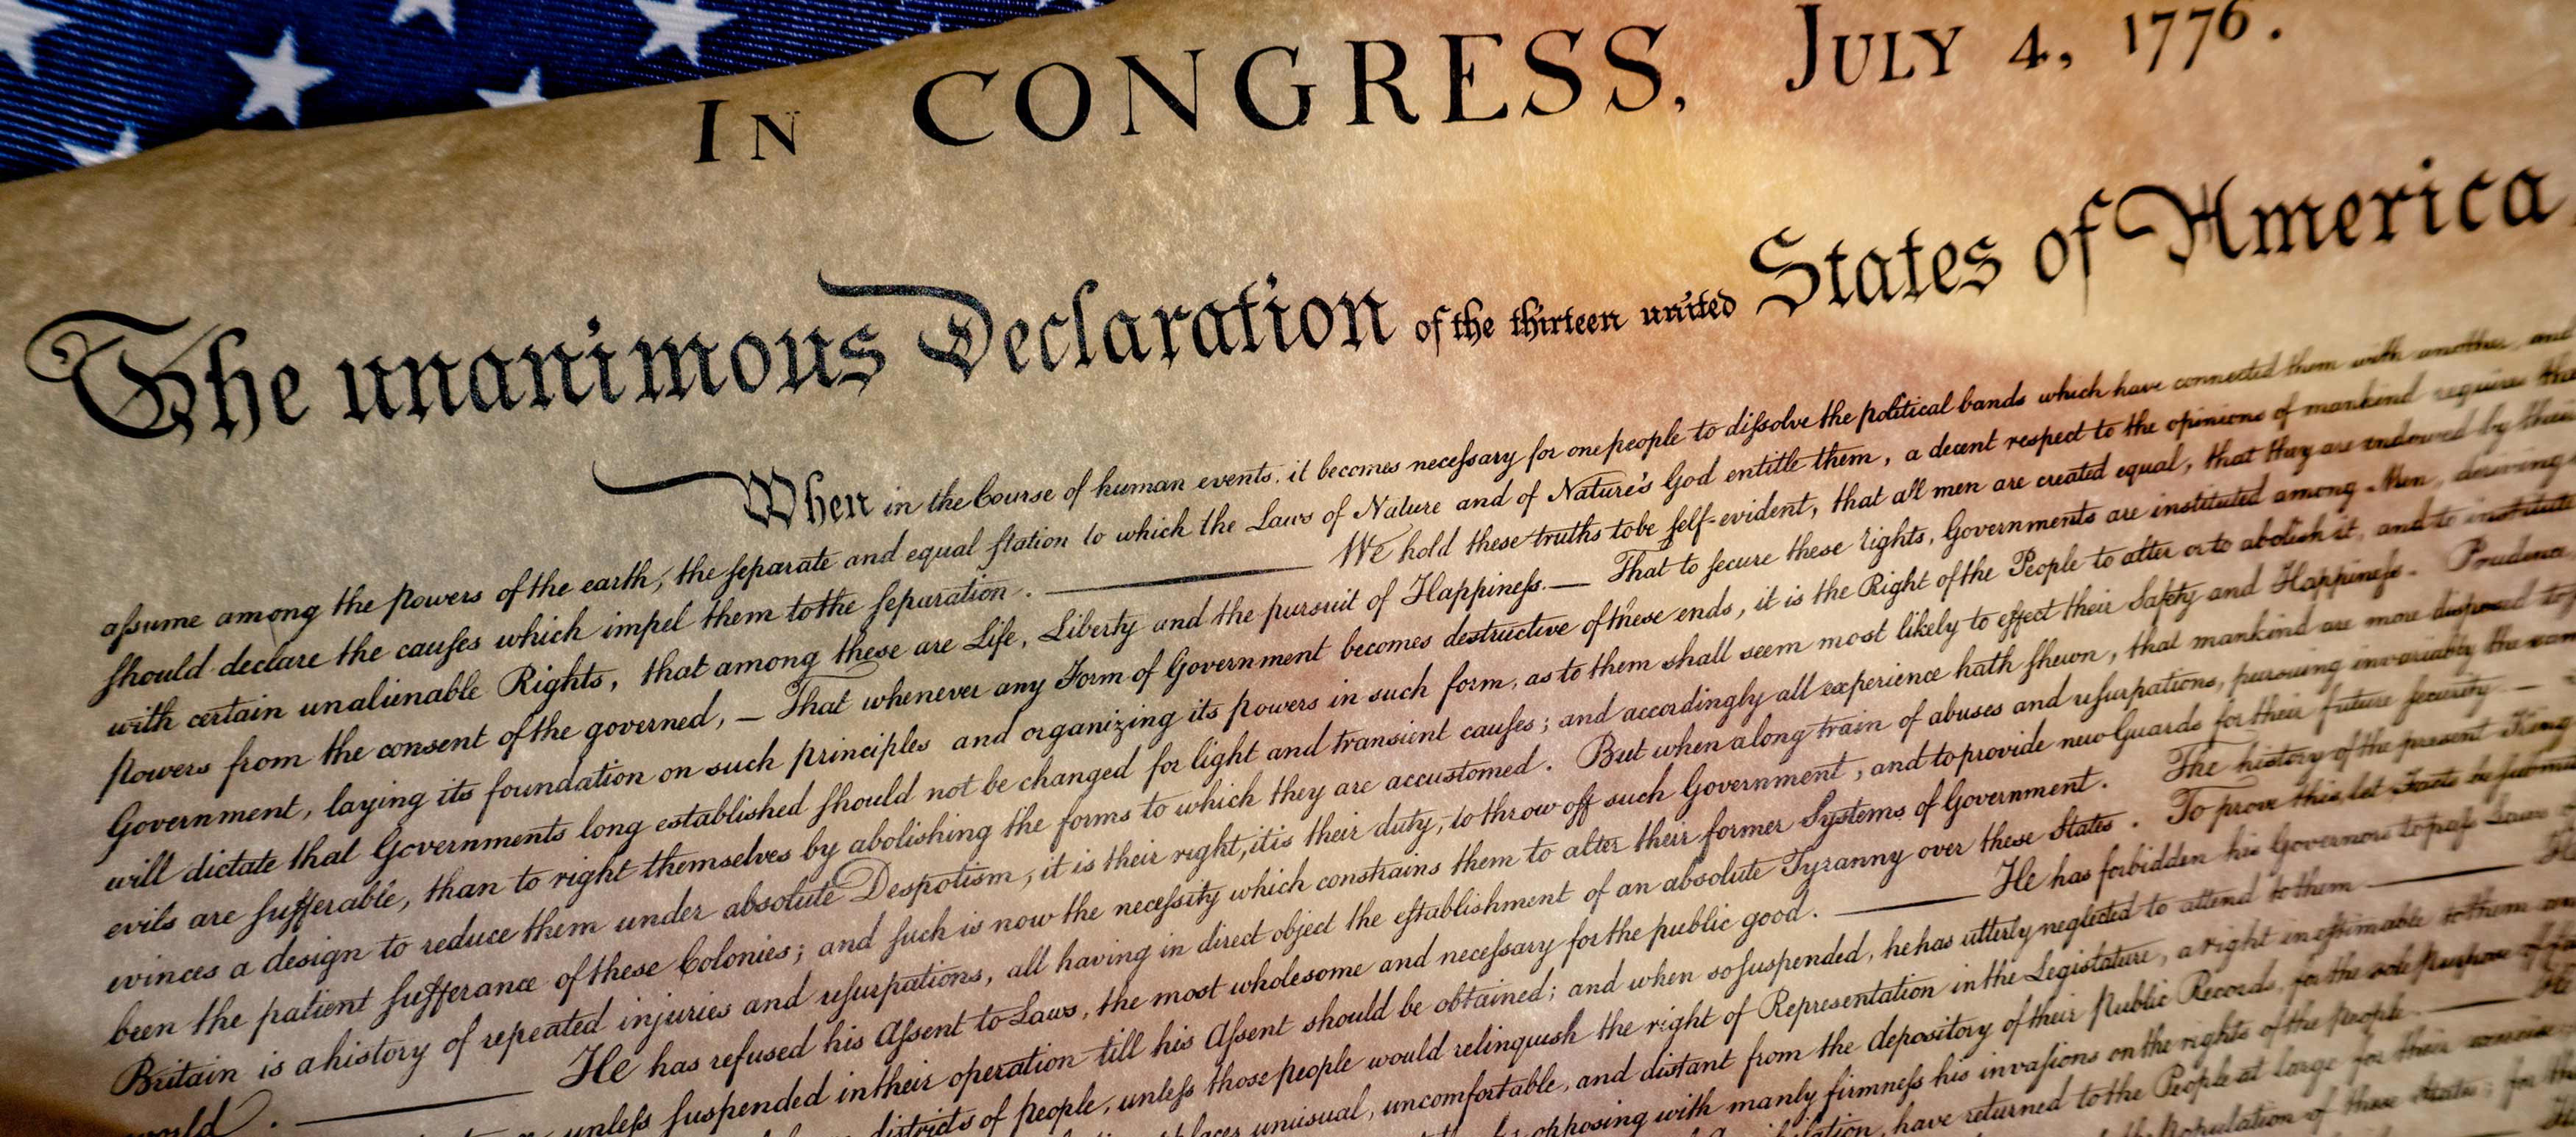 IN CONGRESS, JULY 4, 1776.
The unanimous Declaration of the thirteen united States of America
When in the Course of human events, it becomes neceſsary for one people to diſsolve the political bands which have connected them with another, and
aſsume among the powers of the earth, the ſeparate and equal ſtation to which the Laws of Nature and of Nature's God entitle them, a decent respect to the opinions of mankind requires that
ſhould declare the cauſes which impel them to the ſeparation. We hold these truths to be ſelf-evident, that all men are created equal, that they are endowed by their
with certain unalienable Rights, that among these are Life, Liberty and the pursuit of Happineſs.— That to ſecure these rights, Governments are instituted among Men, deriving
powers from the consent of the governed, — That whenever any Form of Government becomes destructive of these ends, it is the Right of the People to alter or to abolish it, and to institute
Government, laying its foundation on such principles and organizing its powers in such form, as to them shall seem most likely to effect their Safety and Happineſs. Prudence
will dictate that Governments long established ſhould not be changed for light and transient cauſes; and accordingly all experience hath ſhewn, that mankind are more disposed to
evils are ſufferable, than to right themselves by abolishing the forms to which they are accustomed. But when a long train of abuses and uſurpations, pursuing invariably the same
evinces a design to reduce them under absolute Despotism, it is their right, it is their duty, to throw off such Government, and to provide new Guards for their future ſecurity.—
been the patient ſufferance of these Colonies; and ſuch is now the neceſsity which constrains them to alter their former Systems of Government. The history of the present King
Britain is a history of repeated injuries and uſurpations, all having in direct object the eſtablishment of an absolute Tyranny over these States. To prove this, let Facts be
world. He has refused his Aſsent to Laws, the most wholesome and neceſsary for the public good. He has forbidden his Governors to paſs Laws
unleſs ſuspended in their operation till his Aſsent should be obtained; and when so ſuspended, he has utterly neglected to attend to them.
districts of people, unleſs those people would relinquish the right of Representation in the Legislature, a right ineſtimable to them
places unusual, uncomfortable, and distant from the depository of their Public Records, for the sole purpose of
opposing with manly firmneſs his invaſions on the rights of the people. He
have returned to the People at large for their exercise
the population of these States; for